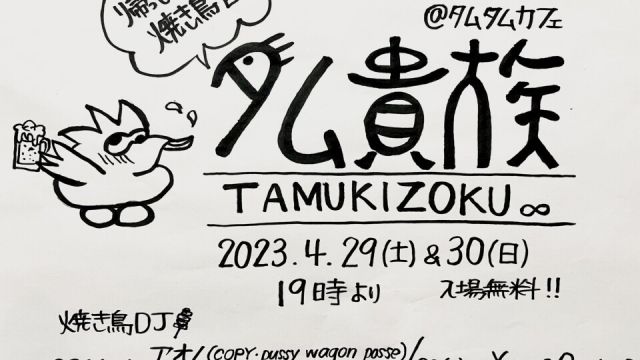 焼き鳥
@タムタムカフェ
タム貴族
TAMUKIZOKU ∞
2023.4.29(土)&30(日)
19時より 入場無料!!
焼き鳥DJ
アオノ(COPY・pussy wagon posse)/